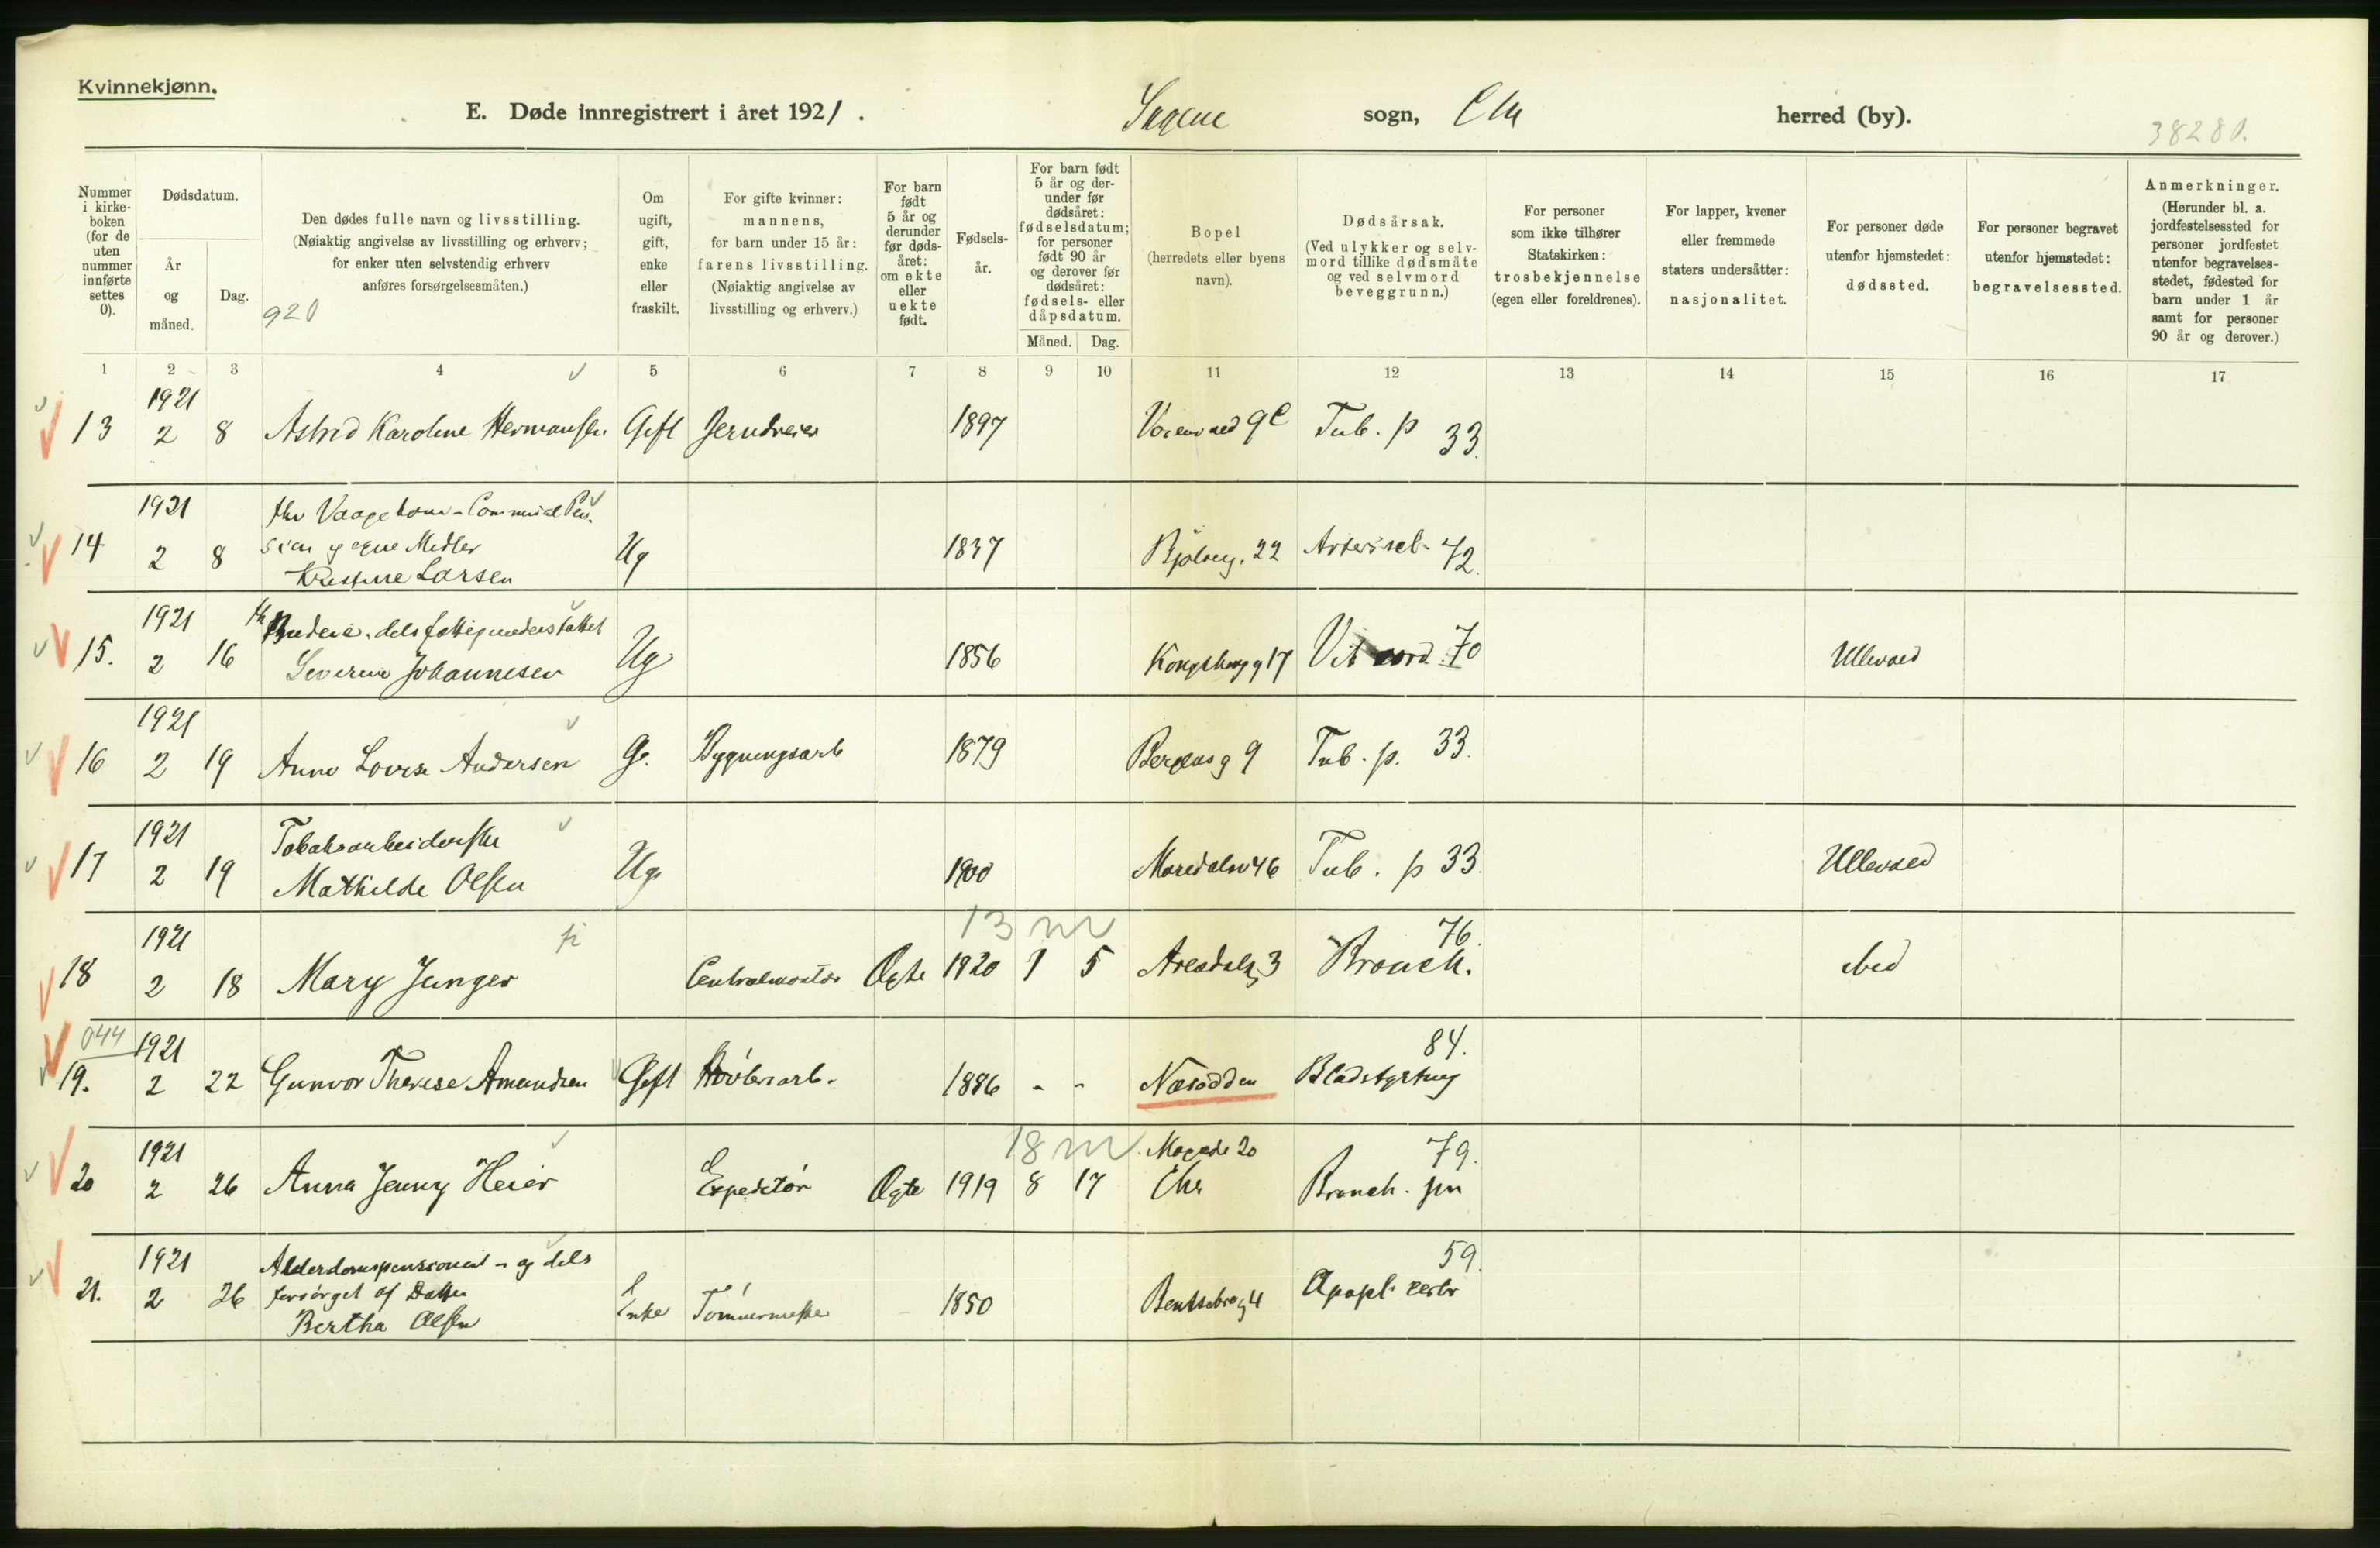 Kvinnekjønn.
E. Døde innregistrert i året 1921. Sagene sogn, Chr herred (by).
38280.
Nummer i kirkeboken (for de uten nummer innførte settes 0).
Dødsdatum.
År og måned.
Dag.
Den dødes fulle navn og livsstilling.
(Nøiaktig angivelse av livsstilling og erhverv;
for enker uten selvstendig erhverv
anføres forsørgelsesmåten.)
920
Om ugift, gift, enke eller fraskilt.
For gifte kvinner:
mannens,
for barn under 15 år:
farens livsstilling.
(Nøiaktig angivelse av
livsstilling og erhverv.)
For barn født 5 år og derunder før dødsåret: om ekte eller uekte født.
Fødselsår.
For barn født 5 år og derunder før dødsåret: fødselsdatum; for personer født 90 år og derover før dødsåret: fødsels- eller dåpsdatum.
Måned. Dag.
Bopel
(herredets eller byens
navn).
Dødsårsak.
(Ved ulykker og selvmord tillike dødsmåte og ved selvmord beveggrunn.)
For personer
som ikke tilhører
Statskirken:
trosbekjennelse
(egen eller foreldrenes).
For lapper, kvener
eller fremmede
staters undersåtter:
nasjonalitet.
For personer døde
utenfor hjemstedet:
dødssted.
For personer begravet
utenfor hjemstedet:
begravelsessted.
Anmerkninger.
(Herunder bl. a.
jordfestelsessted for
personer jordfestet
utenfor begravelsesstedet, fødested for
barn under 1 år
samt for personer
90 år og derover.)
1 2 3 4 5 6 7 8 9 10 11 12 13 14 15 16 17
13 1921 2 8 Astrid Karoline Hermansen Gift Jerndreier 1897 9c Tub. p 33.
14 1921 2 8 Kristine Larsen Ug 1837 22 Arterioscl. 72.
15. 1921 2 16 Budeie, dels fattigunderstøttet
Severine Johannesen Ug 1856 Kongsbergg 17 Vit cord 70 Ullevaal
16 1921 2 19 Anna Lovise Andersen G. Bygningsarb 1879 Bergensg 9 Tub. p. 33.
17 1921 2 19 Tobaksarbeiderske
Mathilde Olsen Ug. 1900 Maridalsv 46 Tub. p 33. Ullevaal
18 1921 2 18 Mary Junger Centralmontør Ægte 1920 1 5 13 m Arendalsg 3 Bronch. 76.
044
19. 1921 2 22 Gunvor Therese Amundsen Gift Høvleriarb. 1886 - - Næsodden Blodstyrtning 84.
20 1921 2 26 Anna Jenny Heier Expeditør Ægte 1919 8 17 18 m Chr Bronch. pn 79.
21. 1921 2 26 Alderdomspensionist - og dels
forsørget af Datter
Bertha Olsen Enke Tømmermester 1850 Bentsebrog 4 Apopl. cerbr 59.